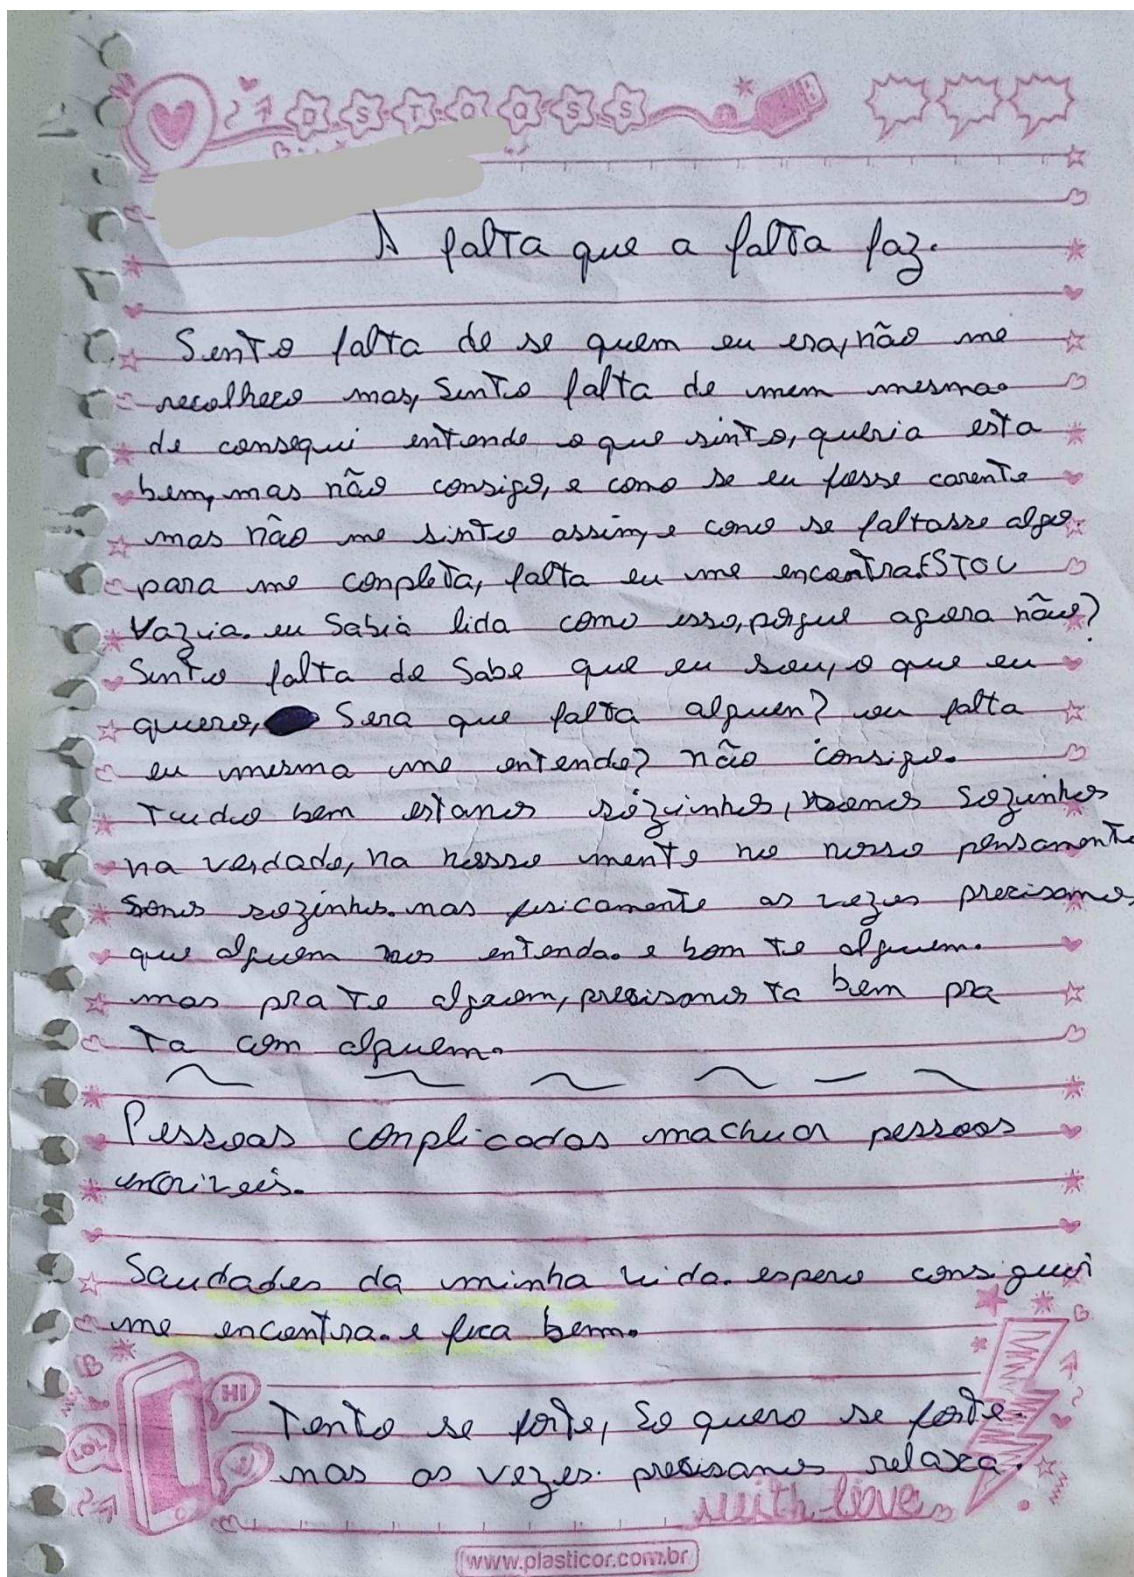 A falta que a falta faz.
Sento falta de se quem eu era, não me
recolheco mas, Sinto falta de mim mesma.
de consegui entende o que sinto, queria esta
bem, mas não consigo, e como se eu fosse carente
mas não me sinto assim, e como se faltasse algo.
para me conpleta, falta eu me encontra. ESTOU
Vazia. eu Sabia lida como isso, porque agora não?
Sinto falta de Sabe que eu sou, o que eu
quero, Sera que falta alguen? ou falta
eu mesma me entende? não consigo.
Tudo bem estanos sózinhos, sozinhos
na verdade, na nosso mente no nosso pensamento
Somos sozinhos. mas fisicamente as vezes precisamos
que alguem nos entenda. e bom te alguem.
mas pra te alguem, precisamos ta bem pra
ta com alguem.
Pessoas conplicadas machuca pessoas
incriveis.
Saudades da minha vida. espero consigui
me encontra. e fica bem.
HI
LOL
Tento se forte, So quero se forte.
mas as vezes. precisamos relaxa.
with love
www.plasticor.com.br